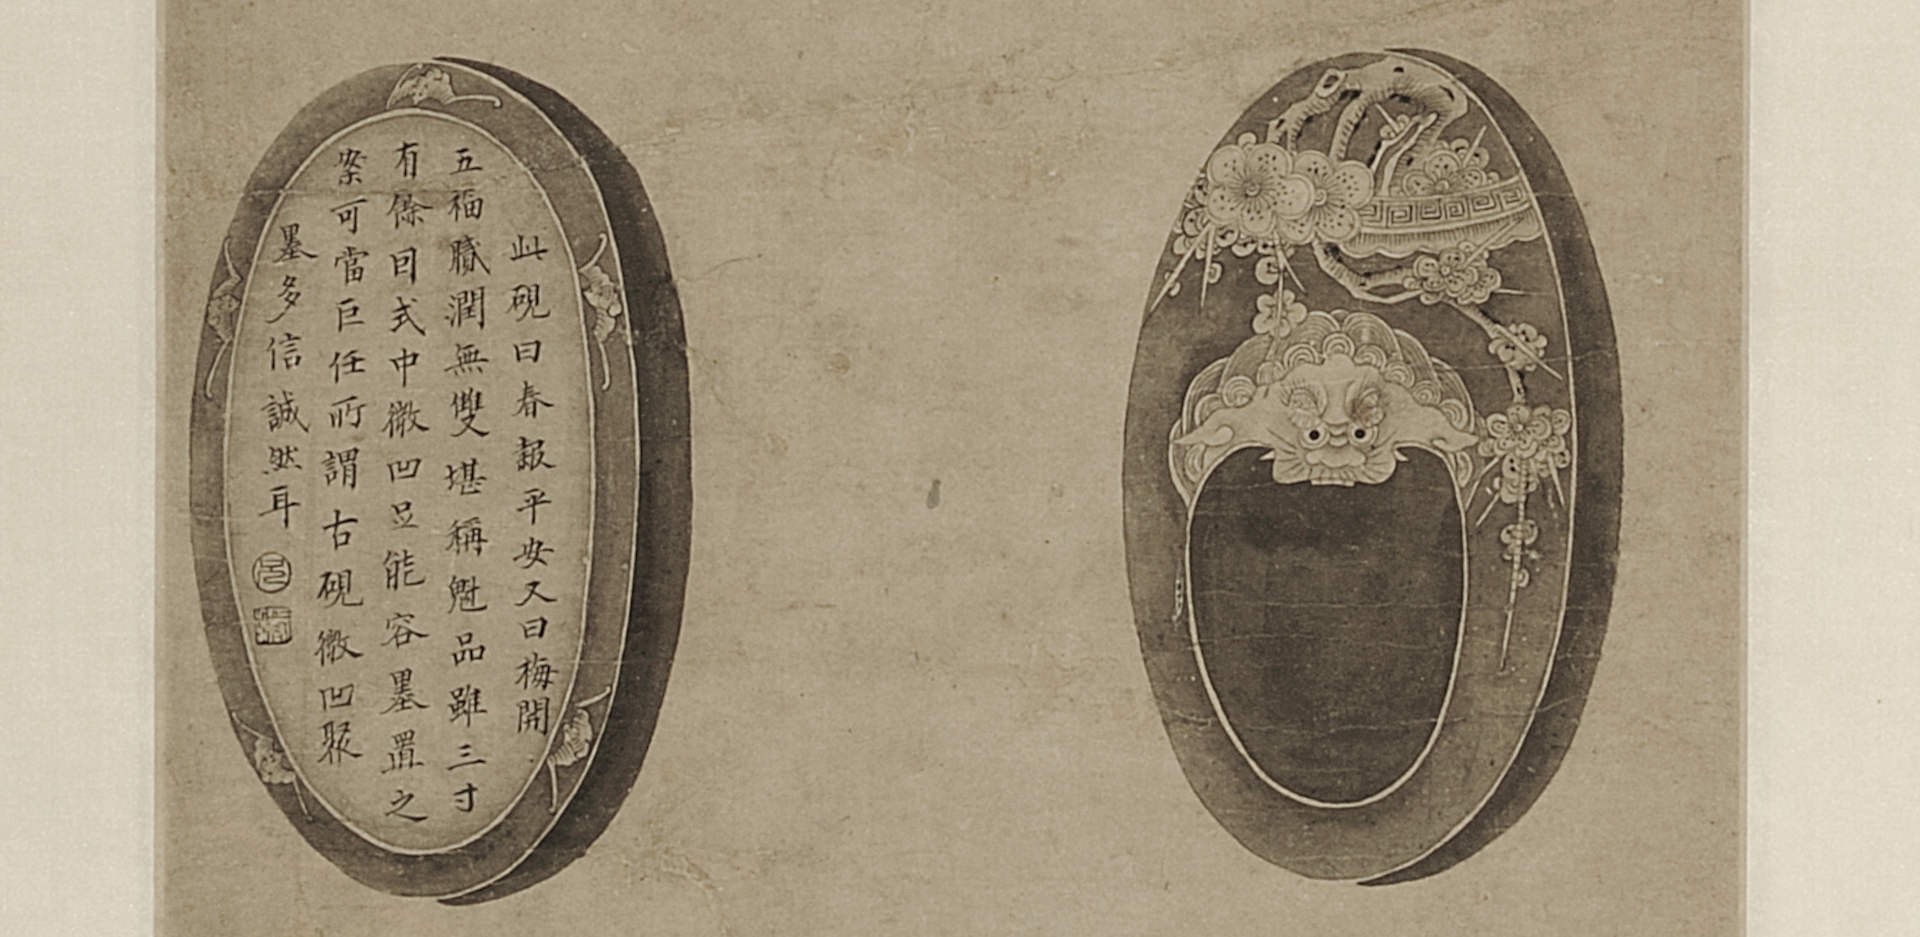 此硯曰春報平安又曰梅開
五福膩潤無雙堪稱魁品雖三寸
有餘回式中微凹显能容墨置之
案可當巨任所謂古硯微凹聚
墨多信誠然耳